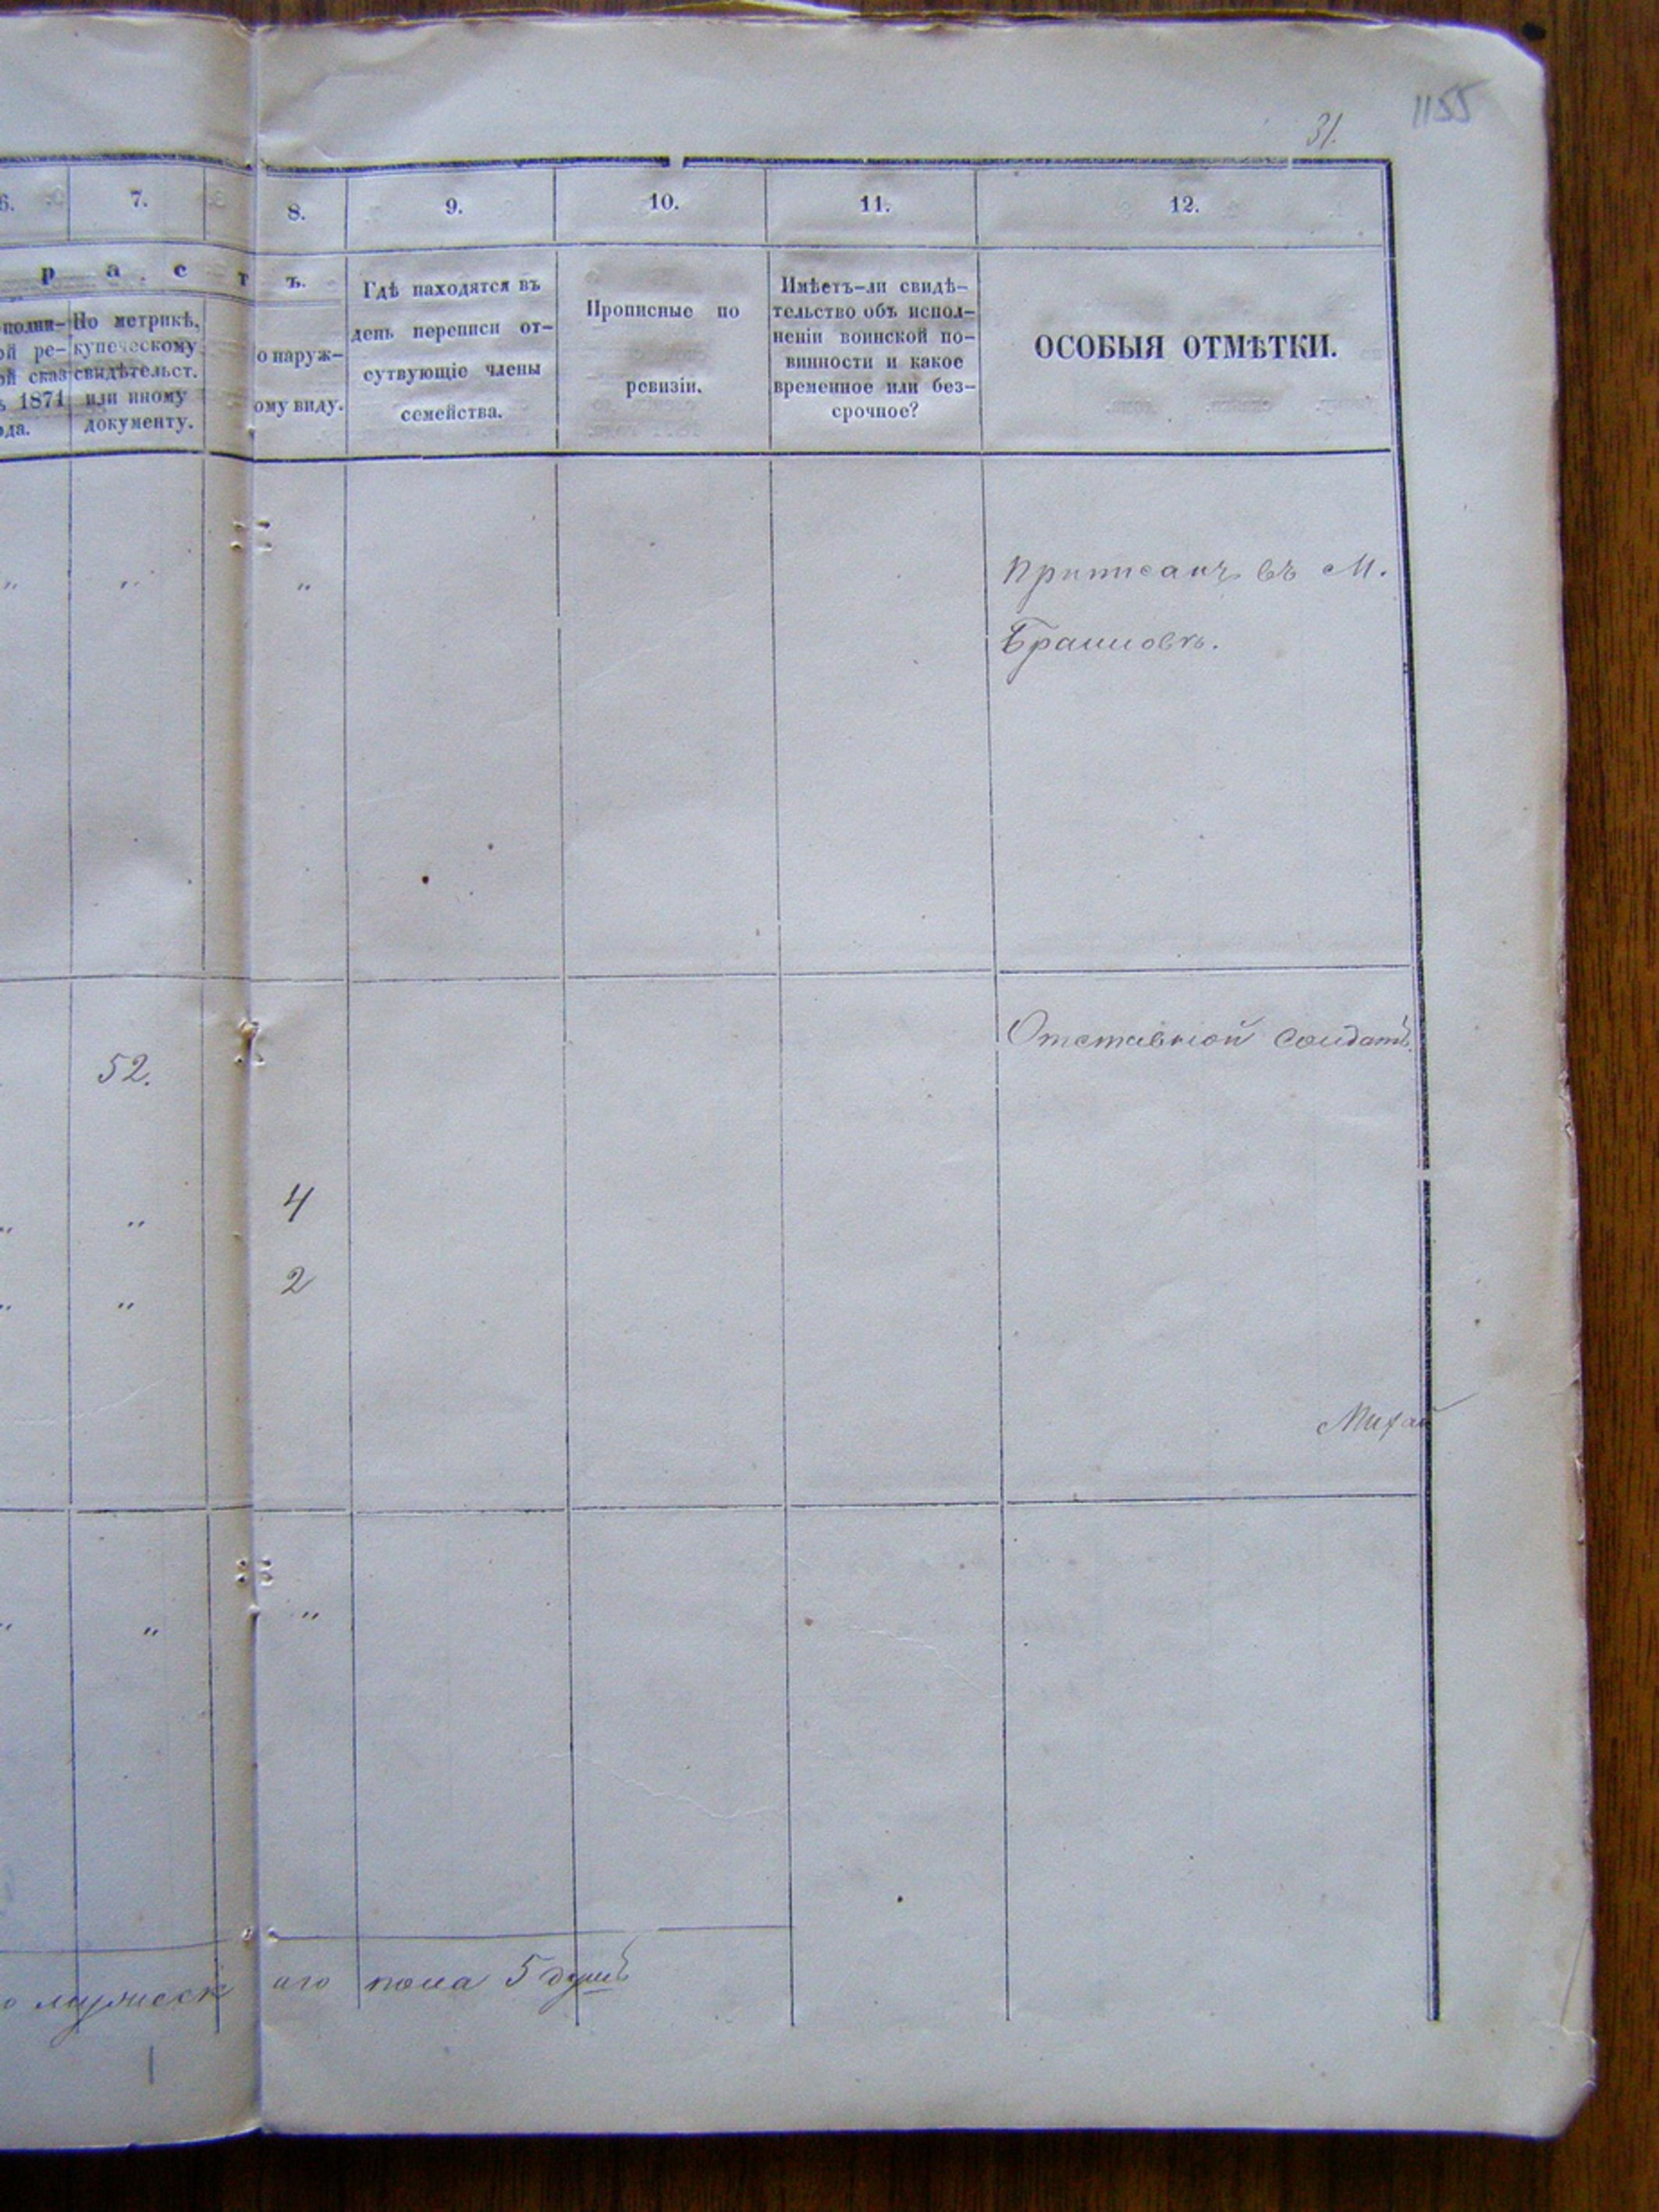 1155
31.
6. 7. 8. 9. 10. 11. 12.
р а с т ъ.
полни-
ой ре-
ой сказ
ъ 1874
ода.
По метрикѣ,
купеческому
свидѣтельст.
или иному
документу.
о наруж-
ому виду.
Гдѣ находятся въ
день переписи от-
сутвующіе члены
семейства.
Прописные по
ревизіи.
Имѣетъ-ли свидѣ-
тельство объ испол-
неніи воинской по-
винности и какое
временное или без-
срочное?
ОСОБЫЯ ОТМѢТКИ.
" " "
Приписанъ въ М.
Отставной Солдатъ
52.
" " 4
" " 2
Михаи
" " "
о мужск аго пола 5 душъ